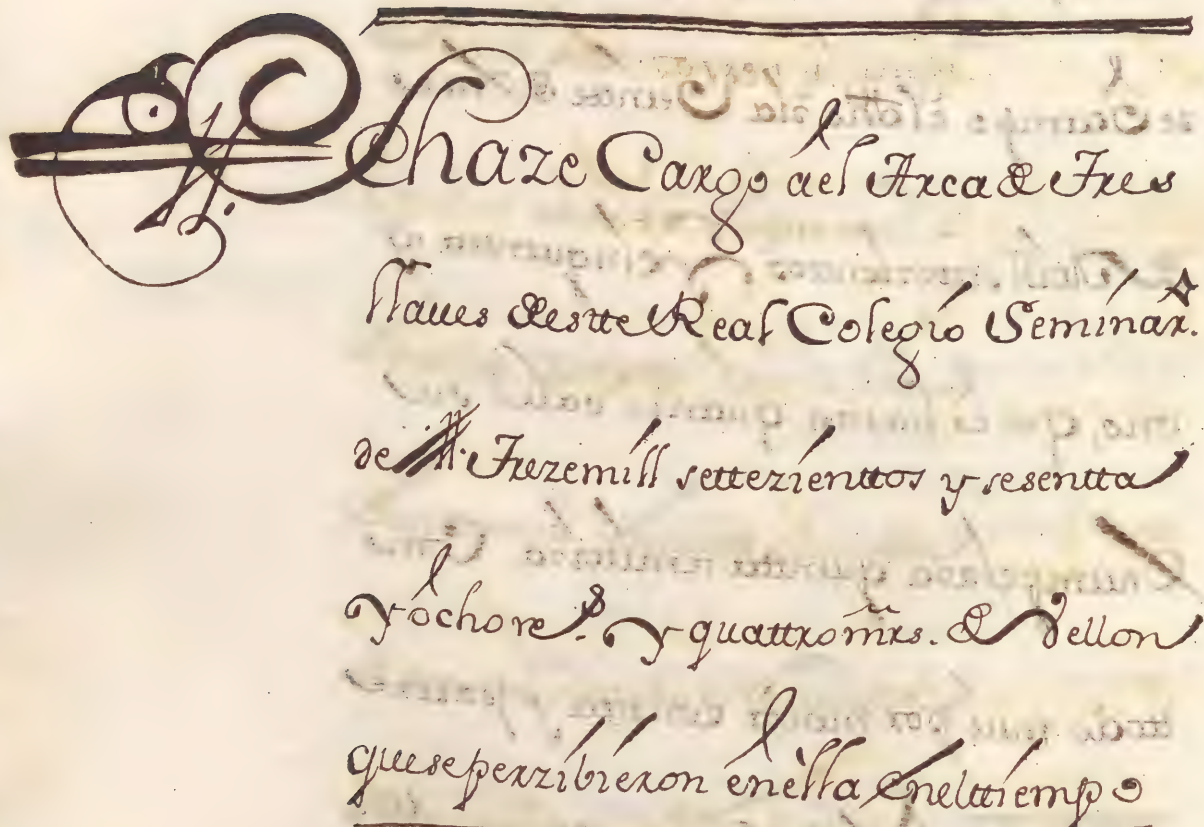 Se haze Cargo ael Arca de Tres
llaues destte Real Colegio Seminar.º
de Trezemill settezienttos y sesentta
y ôcho r.ˢ y quattro mrs. de Vellon
que se perzibieron ênêlla Eneltiempo